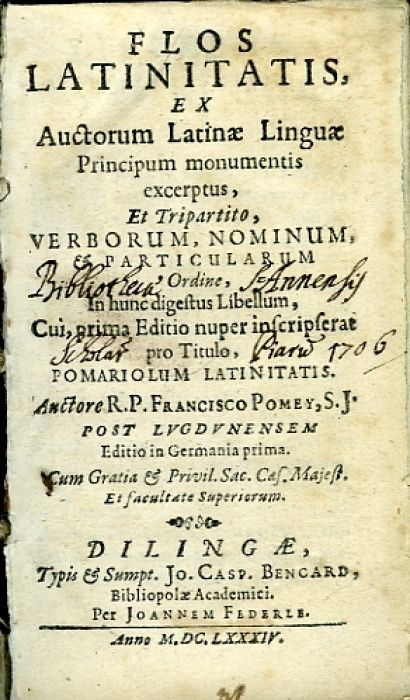 FLOS
LATINITATIS,
EX
Auctorum Latinæ Linguæ
Principum monumentis
excerptus,
Et Tripartito,
VERBORUM, NOMINUM,
& PARTICULARUM
Ordine,
Bibliothecæ S. Annensis
In hunc digestus Libellum,
Cui, prima Editio nuper inscripserat
pro Titulo,
Scholar. Piarū 1706
POMARIOLUM LATINITATIS.
Auctore R.P. FRANCISCO POMEY, S.J.
POST LVGDVNENSEM
Editio in Germania prima.
Cum Gratia & Privil. Sac. Cæs. Majest.
Et facultate Superiorum.
DILINGÆ,
Typis & Sumpt. JO. CASP. BENCARD,
Bibliopolæ Academici.
Per JOANNEM FEDERLE.
Anno M.DC.LXXXIV.